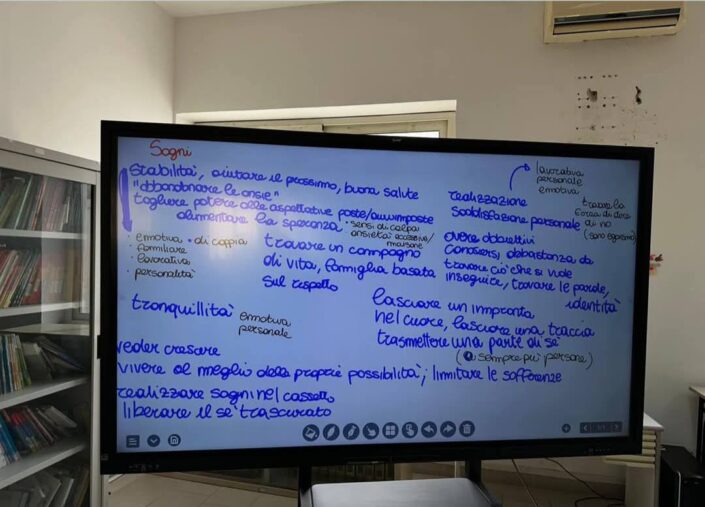 Sogni
Stabilità, aiutare il prossimo, buona salute
"abbandonare le ansie"
togliere potere alle aspettative poste/autoimposte
alimentare la speranza
· sensi di colpa
ansietà eccessive/
· emotiva · di coppia
familiare
· lavorativa
· personalità
trovare un compagno
di vita, famiglia basata
sul rispetto
lavorativa
personale
emotiva
realizzazione
soddisfazione personale
trovare la
forza di dire
di no
(sano egoismo)
avere obiettivi
conoscersi, abbastanza da
trovare ciò che si vuole
inseguire, trovare le parole,
identità
tranquillità
emotiva
personale
lasciare un impronta
nel cuore, lasciare una traccia
trasmettere una parte di sé
(a sempre più persone)
veder crescere
vivere al meglio delle proprie possibilità; limitare le sofferenze
realizzare sogni nel cassetto
liberare il sé trascurato